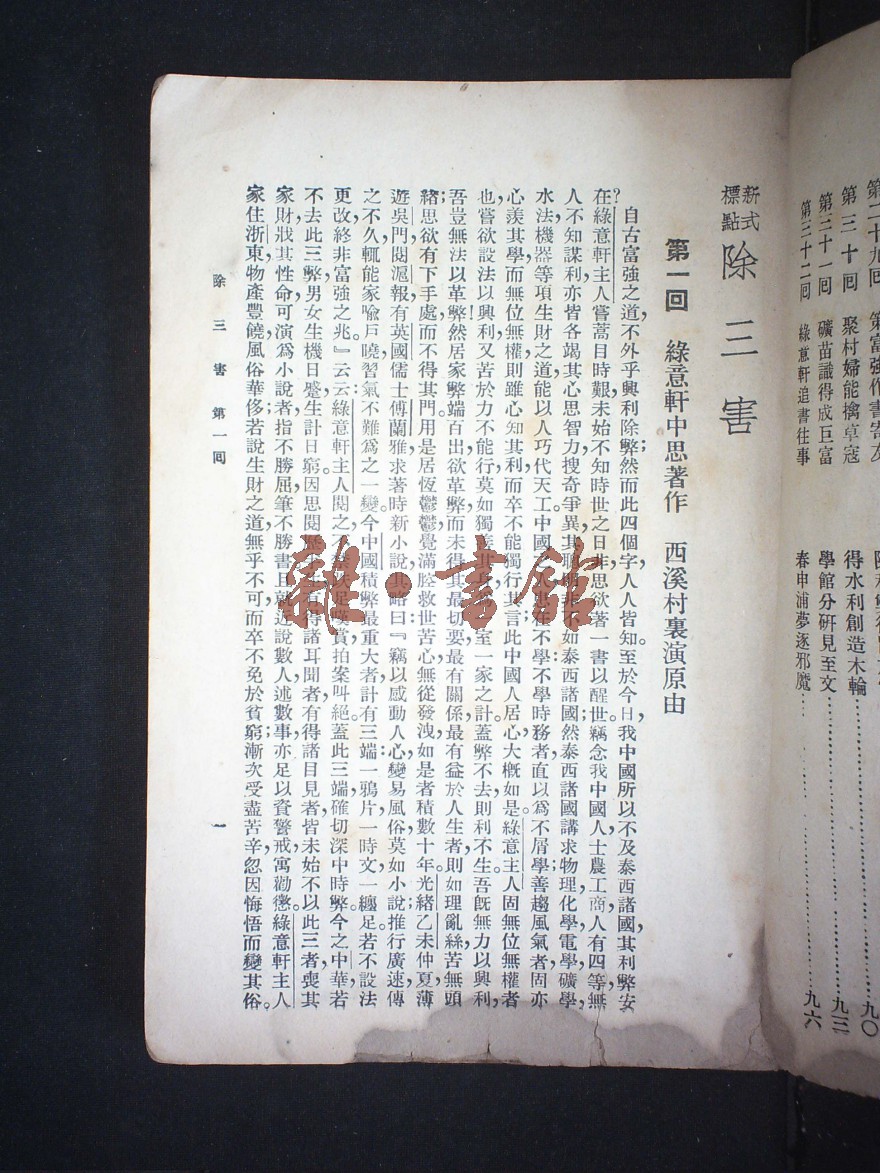 第二十九回　第富強作書寄友
第三十回　聚村婦能擒卓寇　得水利創造木輪……九〇
第三十一回　礦苗識得成巨富　學館分研見至文……九三
第三十二回　綠意軒追書往事　春申浦夢逐邪魔……九六
新式標點　除三害
第一回　綠意軒中思著作　西溪村裏演原由
自古富強之道，不外乎興利除弊；然而此四個字，人人皆知。至於今日，我中國所以不及泰西諸國，其利弊安
在？綠意軒主人嘗蒿目時艱，未始不知時世之日非，思欲著一書以醒世。竊念我中國人士農工商，人有四等，無
人不知謀利，亦皆各竭其心思智力，搜奇爭異，其不如泰西諸國；然泰西諸國講求物理，化學，電學，礦學，
水法，機器等項生財之道，能以人巧代天工。中國之人在不學，不學時務者，直以爲不屑學；善趨風氣者，固亦
心羨其學，而無位無權，則雖心知其利，而卒不能獨行其言；此中國人居心，大概如是。綠意主人固無位無權者
也，嘗欲設法以興利，又苦於力不能行，莫如獨善其身，室一家之計。蓋弊不去則利不生，吾旣無力以興利，
吾豈無法以革弊！然居家弊端百出，欲革弊而未得其最切要，最有關係，最有益於人生者，則如理亂絲，苦無頭
緒；思欲有下手處，而不得其門。用是居恆鬱鬱，覺滿腔救世苦心，無從發洩，如是者積數十年。光緒乙未仲夏，薄
遊吳門，閱滬報有英國儒士傅蘭雅求著時新小說，其略曰：『竊以感動人心，變易風俗，莫如小說；推行廣速，傳
之不久，輒能家喩戶曉，習氣不難爲之一變。今中國積弊最重大者，計有三端：一鴉片，一時文，一纏足。若不設法
更改，終非富強之兆。』云云。綠意軒主人閱之，不禁抃足嘆賞，拍案叫絕。蓋此三端，確切深中時弊。今之中華，若
不去此三弊，男女生機日蹙，生計日窮。因思閱歷半生，有得諸耳聞者，有得諸目見者，皆未始不以此三者，喪其
家財，戕其性命，可演爲小說者，指不勝屈，筆不勝書。且就近說數人，述數事，亦足以資警戒，寓勸懲。綠意軒主人
家住浙東，物產豐饒，風俗華侈；若說生財之道，無乎不可，而卒不免於貧窮，漸次受盡苦辛，忽因悔悟而變其俗。
除三害　第一回　一
雜·書館